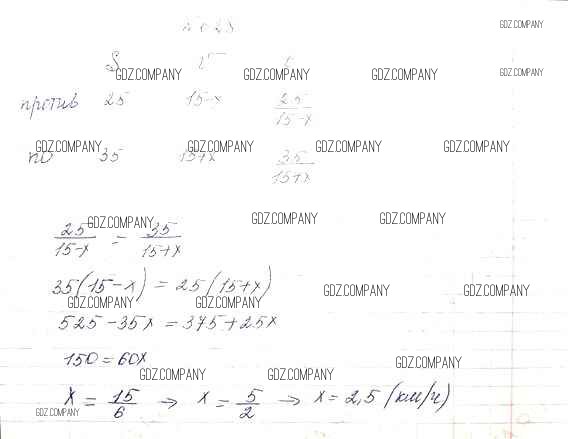 GDZ.COMPANY
S v t
GDZ.COMPANY GDZ.COMPANY GDZ.COMPANY GDZ.COMPANY
против 25 15-x 25/(15-x)
GDZ.COMPANY GDZ.COMPANY GDZ.COMPANY GDZ.COMPANY
по 35 15+x 35/(15+x)
GDZ.COMPANY GDZ.COMPANY GDZ.COMPANY
25/(15-x) = 35/(15+x)
35(15-x) = 25(15+x)
GDZ.COMPANY GDZ.COMPANY GDZ.COMPANY GDZ.COMPANY
525-35x = 375+25x
150 = 60x
GDZ.COMPANY GDZ.COMPANY GDZ.COMPANY
x = 15/6 → x = 5/2 → x = 2,5 (км/ч)
GDZ.COMPANY